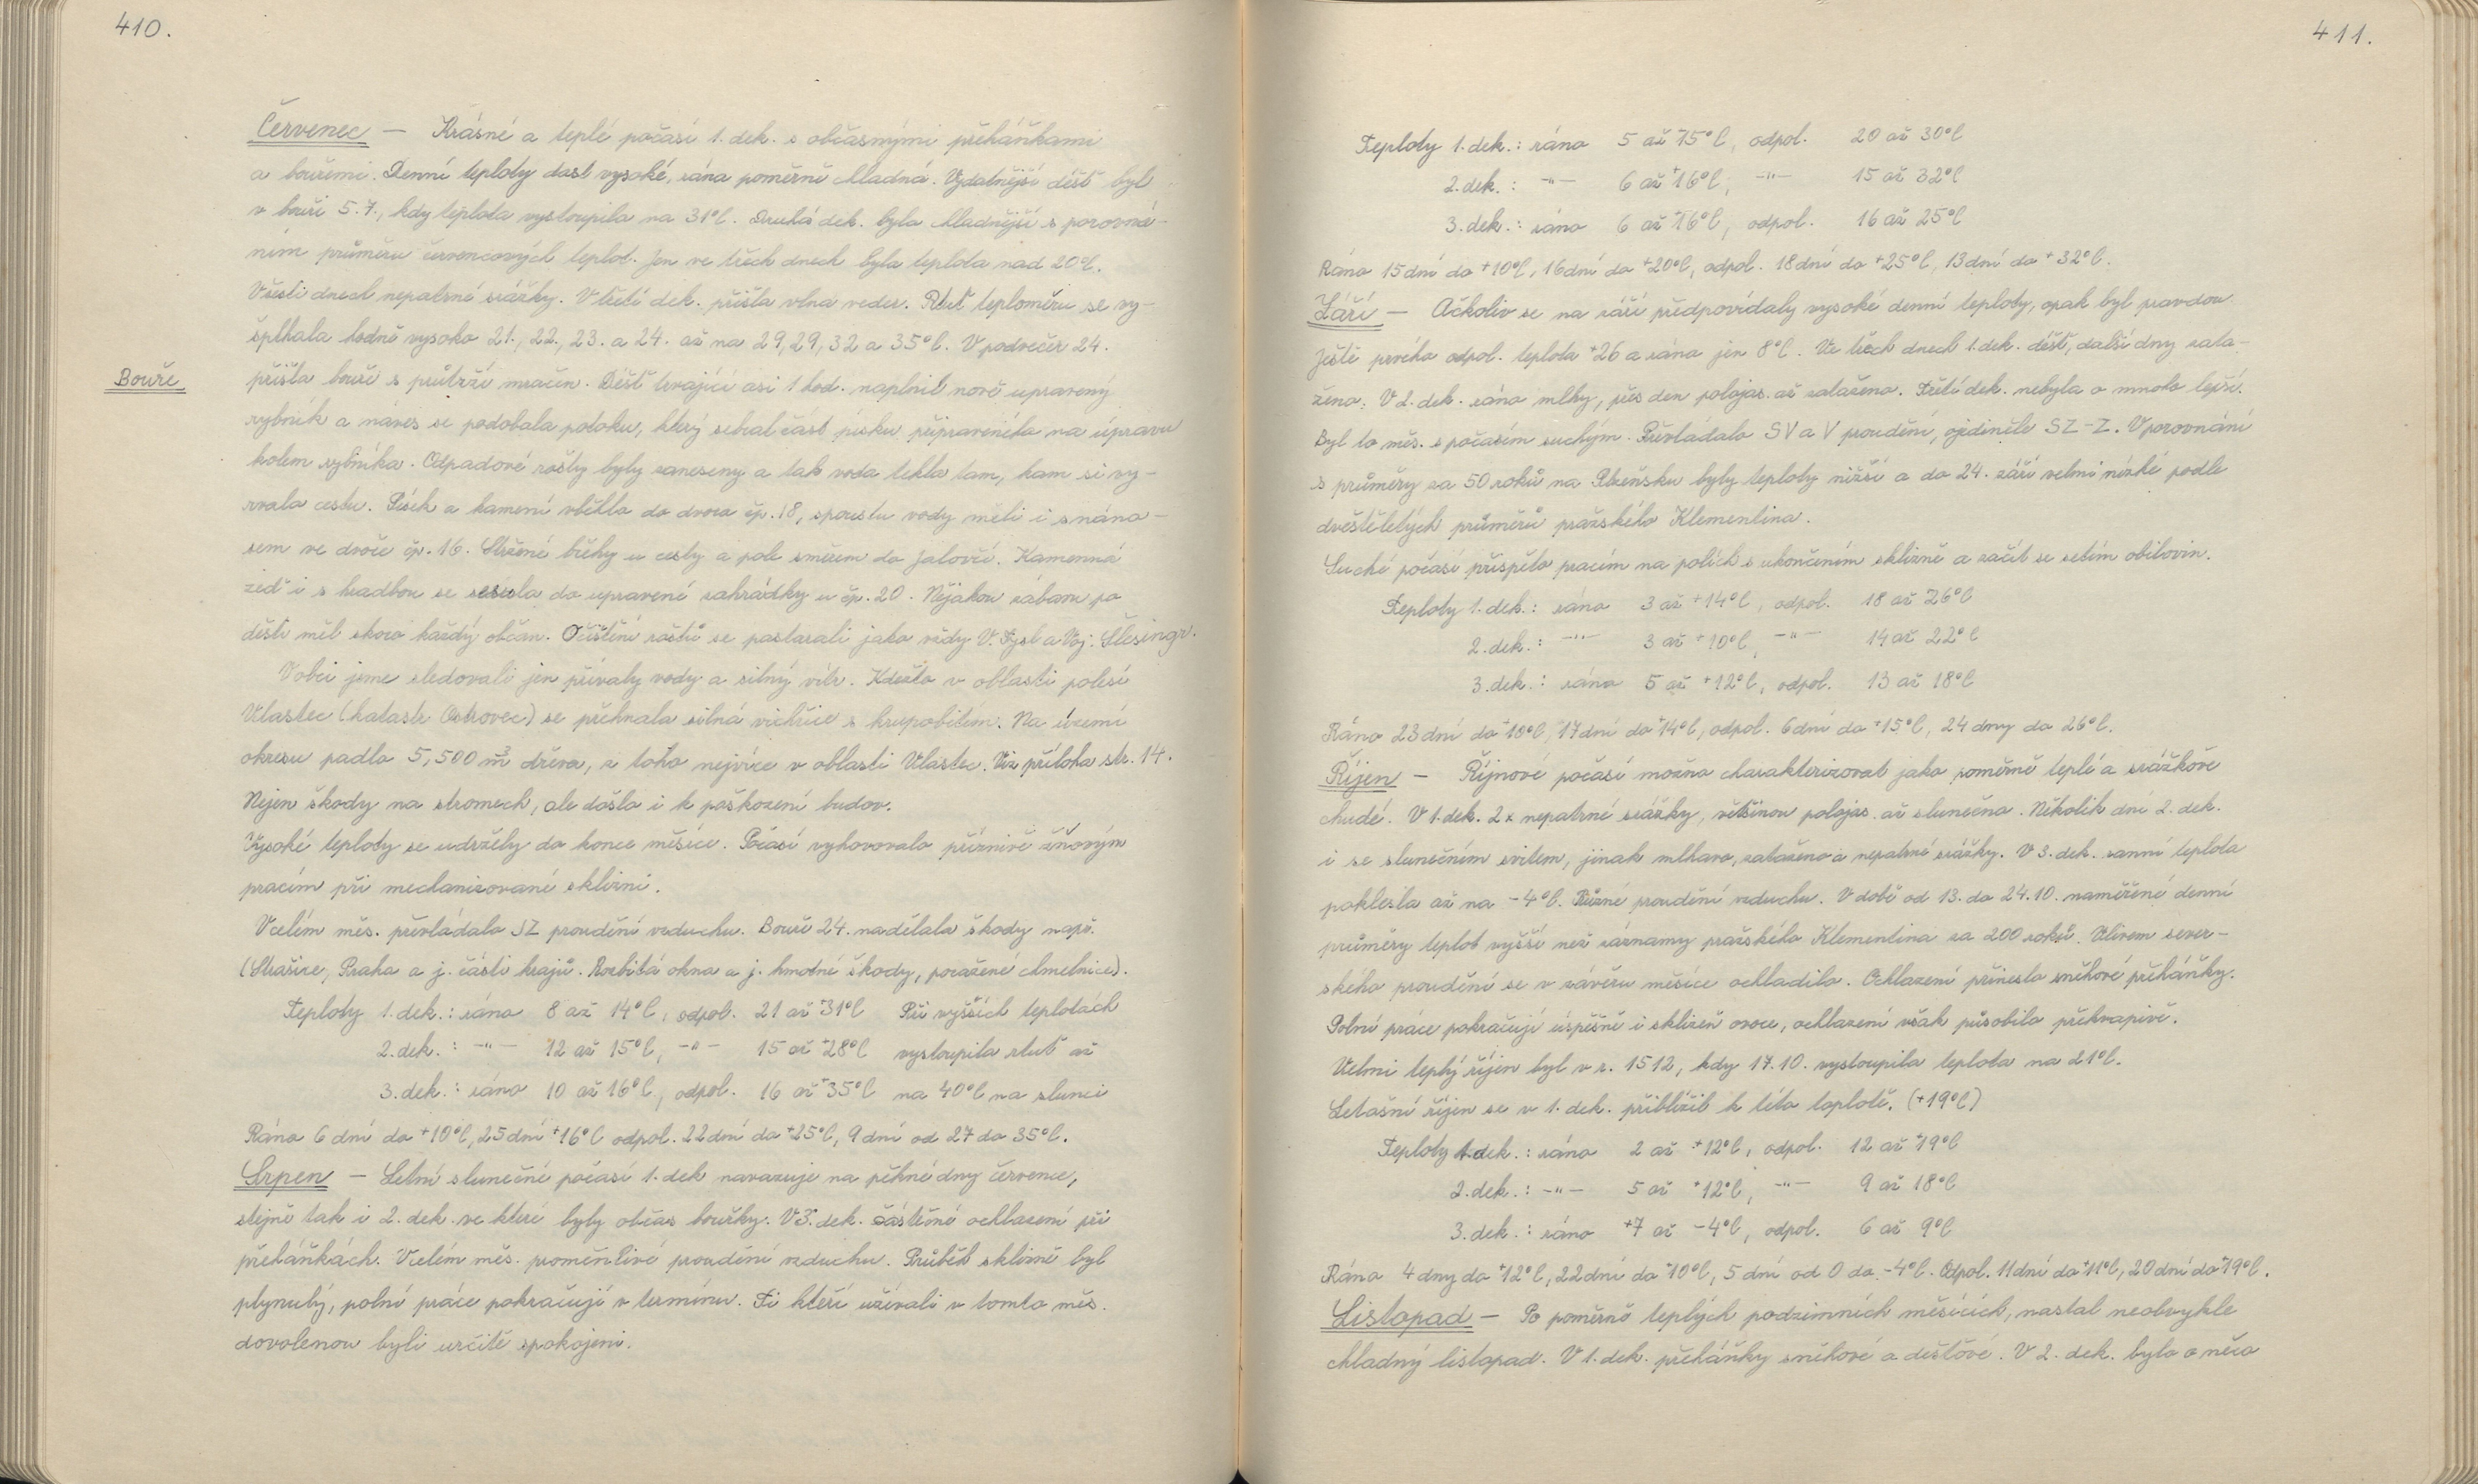 410.
Červenec — Krásné a teplé počasí 1. dek. s občasnými přeháňkami
a bouřemi. Denní teploty dost vysoké, rána poměrně chladná. Vydatnější déšť byl
v bouři 5.7., kdy teplota vystoupila na 31°C. Druhá dek. byla chladnější s porovná-
ním průměru červencových teplot. Jen ve třech dnech byla teplota nad 20°C.
V šesti dnech nepatrné srážky. V třetí dek. přišla vlna veder. Rtuť teploměru se vy-
šplhala hodně vysoko 21., 22., 23. a 24. až na 29, 29, 32 a 35°C. V podvečer 24.
Bouře
přišla bouře s průtrží mračen. Déšť trvající asi 1 hod. naplnil nově upravený
rybník a náves se podobala potoku, který sebral část písku připraveného na úpravu
kolem rybníka. Odpadové rošty byly zaneseny a tak voda tekla tam, kam si vy-
rvala cestu. Písek a kamení vběhlo do dvora čp. 18, spoustu vody měli i s nána-
sem ve dvoře čp. 16. Stržené břehy u cesty a pole směrem do Jalovčí. Kamenná
zeď i s hradbou se sesula do upravené zahrádky u čp. 20. Nějakou zábavu po
dešti měl skoro každý občan. Očištění roštů se postarali jako vždy V. Fysl a Voj. Šlesingr.
V obci jsme sledovali jen přívaly vody a silný vítr. Kdežto v oblasti polesí
Vlastec (katastr Ostrovec) se přehnala silná vichřice s krupobitím. Na území
okresu padlo 5,500 m³ dřeva, z toho nejvíce v oblasti Vlastec. Viz příloha str. 14.
Nejen škody na stromech, ale došlo i k poškození budov.
Vysoké teploty se udržely do konce měsíce. Počasí vyhovovalo příznivě žňovým
pracím při mechanizované sklizni.
V celém měs. převládalo JZ proudění vzduchu. Bouře 24. nadělala škody např.
(Strašice, Praha a j. části krajů. Rozbitá okna a j. hmotné škody, poražené chmelnice).
Teploty 1. dek.: ráno 8 až 14°C, odpol. 21 až +31°C Při vyšších teplotách
2. dek.: -"- 12 až 15°C, -"- 15 až +28°C vystoupila rtuť až
3. dek.: ráno 10 až 16°C, odpol. 16 až +35°C na 40°C na slunci
Ráno 6 dní do +10°C, 25 dní +16°C odpol. 22 dní do +25°C, 9 dní od 27 do 35°C.
Srpen — Letní slunečné počasí 1. dek navazuje na pěkné dny července,
stejně tak i 2. dek. ve které byly občas bouřky. V 3. dek. částečné ochlazení při
přeháňkách. V celém měs. proměnlivé proudění vzduchu. Průběh sklizně byl
plynulý, polní práce pokračují v termínu. Ti kteří užívali v tomto měs.
dovolenou byli určitě spokojeni.
411.
Teploty 1. dek.: ráno 5 až +15°C, odpol. 20 až 30°C
2. dek.: -"- 6 až +16°C, -"- 15 až 32°C
3. dek.: ráno 6 až +16°C, odpol. 16 až 25°C
Ráno 15 dní do +10°C, 16 dní do +20°C, odpol. 18 dní do +25°C, 13 dní do +32°C.
Září — Ačkoliv se na září předpovídaly vysoké denní teploty, opak byl pravdou
Ještě prvého odpol. teplota +26 a ráno jen 8°C. Ve třech dnech 1. dek. déšť, další dny zata-
ženo. V 2. dek. ráno mlhy, přes den polojas. až zataženo. Třetí dek. nebyla o mnoho lepší.
Byl to měs. s počasím suchým. Převládalo SV a V proudění, ojediněle SZ-Z. V porovnání
s průměry za 50 roků na Plzeňsku byly teploty nižší a do 24. září velmi nízké podle
dvěstěletých průměrů pražského Klementina.
Suché počasí přispělo pracím na polích s ukončením sklizně a začít se setím obilovin.
Teploty 1. dek.: ráno 3 až +14°C, odpol. 18 až 26°C
2. dek.: -"- 3 až +10°C, -"- 14 až 22°C
3. dek.: ráno 5 až +12°C, odpol. 13 až 18°C
Ráno 23 dní do +10°C, 17 dní do +14°C, odpol. 6 dní do +15°C, 24 dny do 26°C.
Říjen — Říjnové počasí možno charakterizovat jako poměrně teplé a srážkově
chudé. V 1. dek. 2x nepatrné srážky, většinou polojas. až slunečno. Několik dní 2. dek.
i se slunečním svitem, jinak mlhavo, zataženo a nepatrné srážky. V 3. dek. ranní teplota
poklesla až na -4°C. Různé proudění vzduchu. V době od 13. do 24.10. naměřené denní
průměry teplot vyšší než záznamy pražského Klementina za 200 roků. Vlivem sever-
ského proudění se v závěru měsíce ochladilo. Ochlazení přineslo sněhové přeháňky.
Polní práce pokračují úspěšně i sklizeň ovoce, ochlazení však působilo překvapivě.
Velmi teplý říjen byl v r. 1512, kdy 17.10. vystoupila teplota na 21°C.
Letošní říjen se v 1. dek. přiblížil k této teplotě. (+19°C)
Teploty 1. dek.: ráno 2 až +12°C, odpol. 12 až +19°C
2. dek.: -"- 5 až +12°C, -"- 9 až 18°C
3. dek.: ráno +7 až -4°C, odpol. 6 až 9°C
Ráno 4 dny do +12°C, 22 dní do +10°C, 5 dní od 0 do -4°C. Odpol. 11 dní do +11°C, 20 dní do +19°C.
Listopad — Po poměrně teplých podzimních měsících, nastal neobvykle
chladný listopad. V 1. dek. přeháňky sněhové a dešťové. V 2. dek. bylo o něco